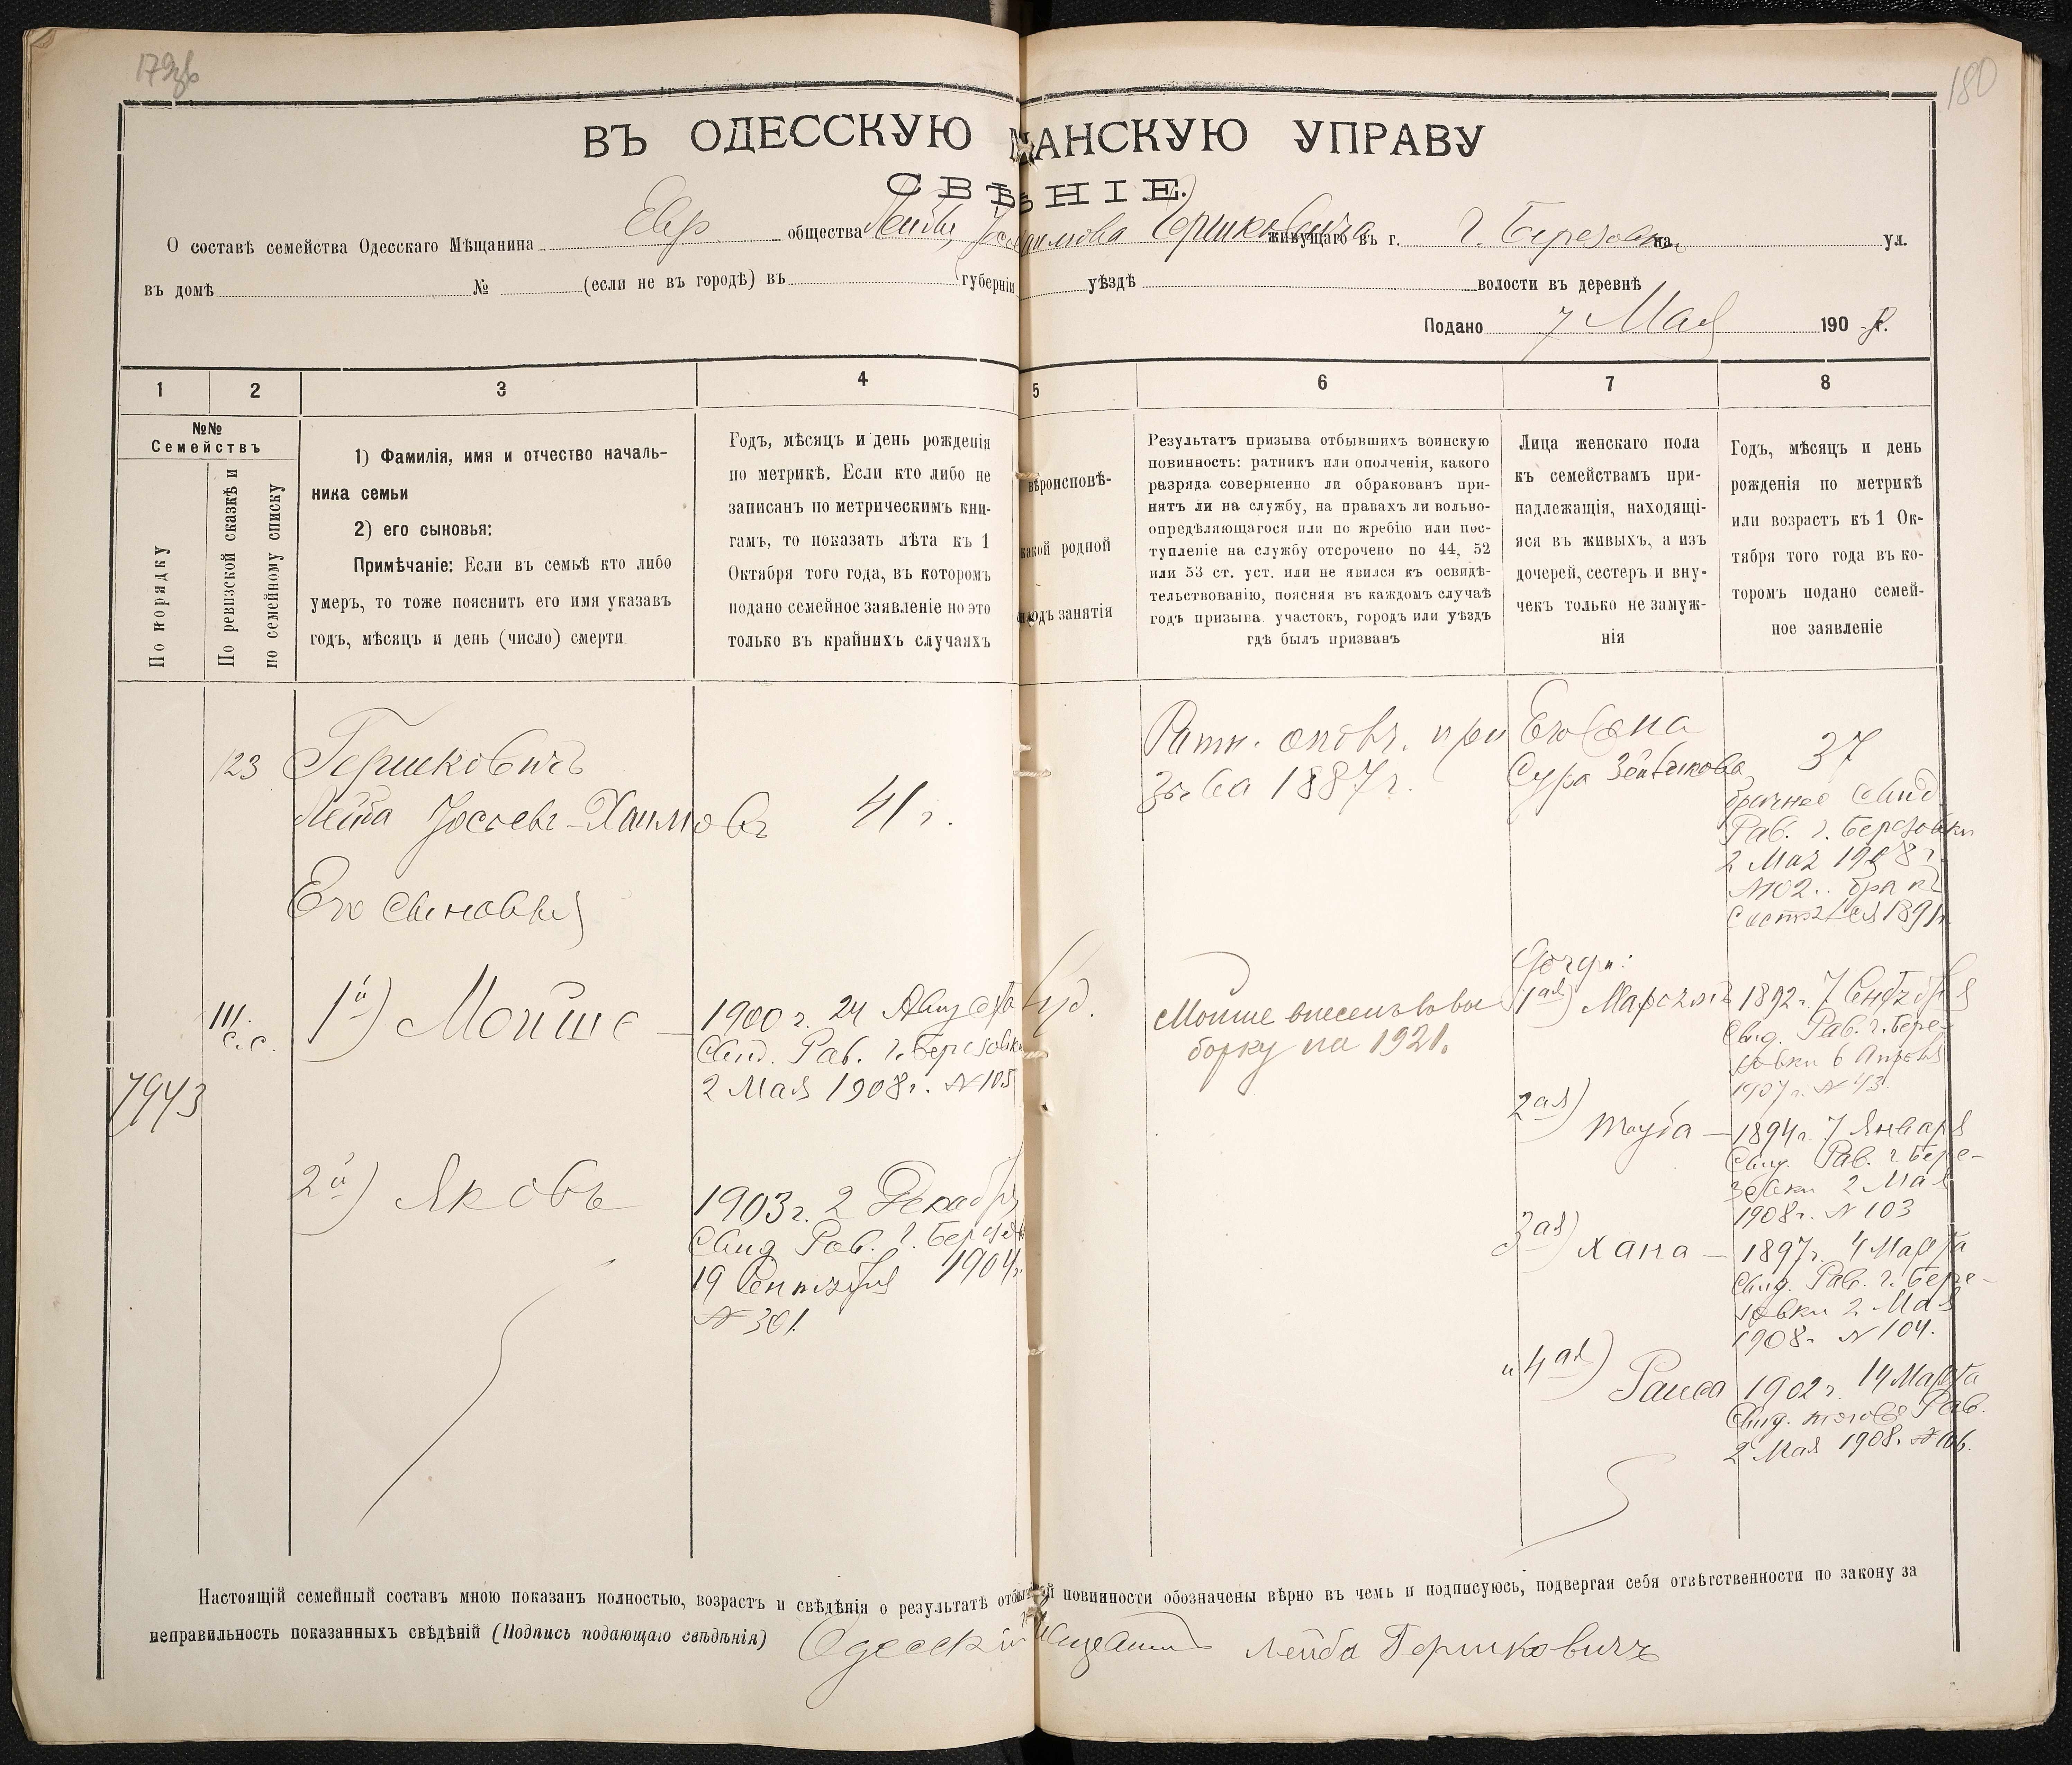 179об
180
ВЪ ОДЕССКУЮ М АНСКУЮ УПРАВУ
СВѢ НІЕ.
О составѣ семейства Одесскаго Мѣщанина Евр. общества Лейбы Хаимова Гершковича живущаго въ г. г. Березовкѣ на ул.
въ домѣ № (если не въ городѣ) въ губерніи уѣздѣ волости въ деревнѣ
Подано 7 Мая 1908 г.
1 2 3 4 5 6 7 8
№№
Семействъ
По порядку
По ревизской сказкѣ и
по семейному списку
1) Фамилія, имя и отчество началь-
ника семьи
2) его сыновья:
Примѣчаніе: Если въ семьѣ кто либо
умеръ, то тоже пояснить его имя указавъ
годъ, мѣсяцъ и день (число) смерти.
Годъ, мѣсяцъ и день рожденія
по метрикѣ. Если кто либо не
записанъ по метрическимъ кни-
гамъ, то показать лѣта къ 1
Октября того года, въ которомъ
подано семейное заявленіе но это
только въ крайнихъ случаяхъ
вѣроисповѣ-
какой родной
родъ занятія
Результатъ призыва отбывшихъ воинскую
повинность: ратникъ или ополченія, какого
разряда совершенно ли обракованъ при-
нятъ ли на службу, на правахъ ли вольно-
опредѣляющагося или по жребію или пос-
тупленіе на службу отсрочено по 44, 52
или 53 ст. уст. или не явился къ освидѣ-
тельствованію, поясняя въ каждомъ случаѣ
годъ призыва участокъ, городъ или уѣздъ
гдѣ былъ призванъ
Лица женскаго пола
къ семействамъ при-
надлежащія, находящі-
яся въ живыхъ, а изъ
дочерей, сестеръ и вну-
чекъ только не замуж-
нія
Годъ, мѣсяцъ и день
рожденія по метрикѣ
или возрастъ къ 1 Ок-
тября того года въ ко-
торомъ подано семей-
ное заявленіе
123
Гершковичъ
Лейба Іосьевъ-Хаимовъ 41 г.
Его сыновья
III.
с.с.
7943
1й) Мойше
1900 г. 24 Августа
Свид. Рав. г. Березовки
2 Мая 1908 г. № 105
Іуд.
2й) Яковъ
1903 г. 2 Декабря
Свид Рав. г. Березов
19 Сентября 1904 г.
№ 301.
Ратн. ополч. при
зыва 1887 г.
Мойше внесенъ въ вы
борку на 1921.
Его жена
Сура
37
брачное Свид.
Рав. г. Березовки
2 Мая 1908 г.
№ 102. бракъ
состоялся 1891 г.
Дочери:
1ая)
1892 г. 7 Сентября
Свид. Рав. г. Бере-
зовки 6 Апреля
1907 г. № 43.
2ая) Тауба
1894 г. 7 Января
Свид. Рав. г. Бере-
зовки 2 Мая
1908 г. № 103
3ая) Хана
1897 г. 4 Марта
Свид. Рав. г. Бере-
зовки 2 Мая
1908 г. № 104.
и 4ая) Раиса
1902 г. 14 Марта
Свид. того же Рав.
2 Мая 1908 г. № 106.
Настоящій семейный составъ мною показанъ полностью, возрастъ и свѣдѣнія о результатѣ отбы й повинности обозначены вѣрно въ чемъ и подписуюсь, подвергая себя отвѣтственности по закону за
неправильность показанныхъ свѣдѣній (Подпись подающаго свѣдѣнія) Одесскій Мещанинъ Лейба Гершковичъ